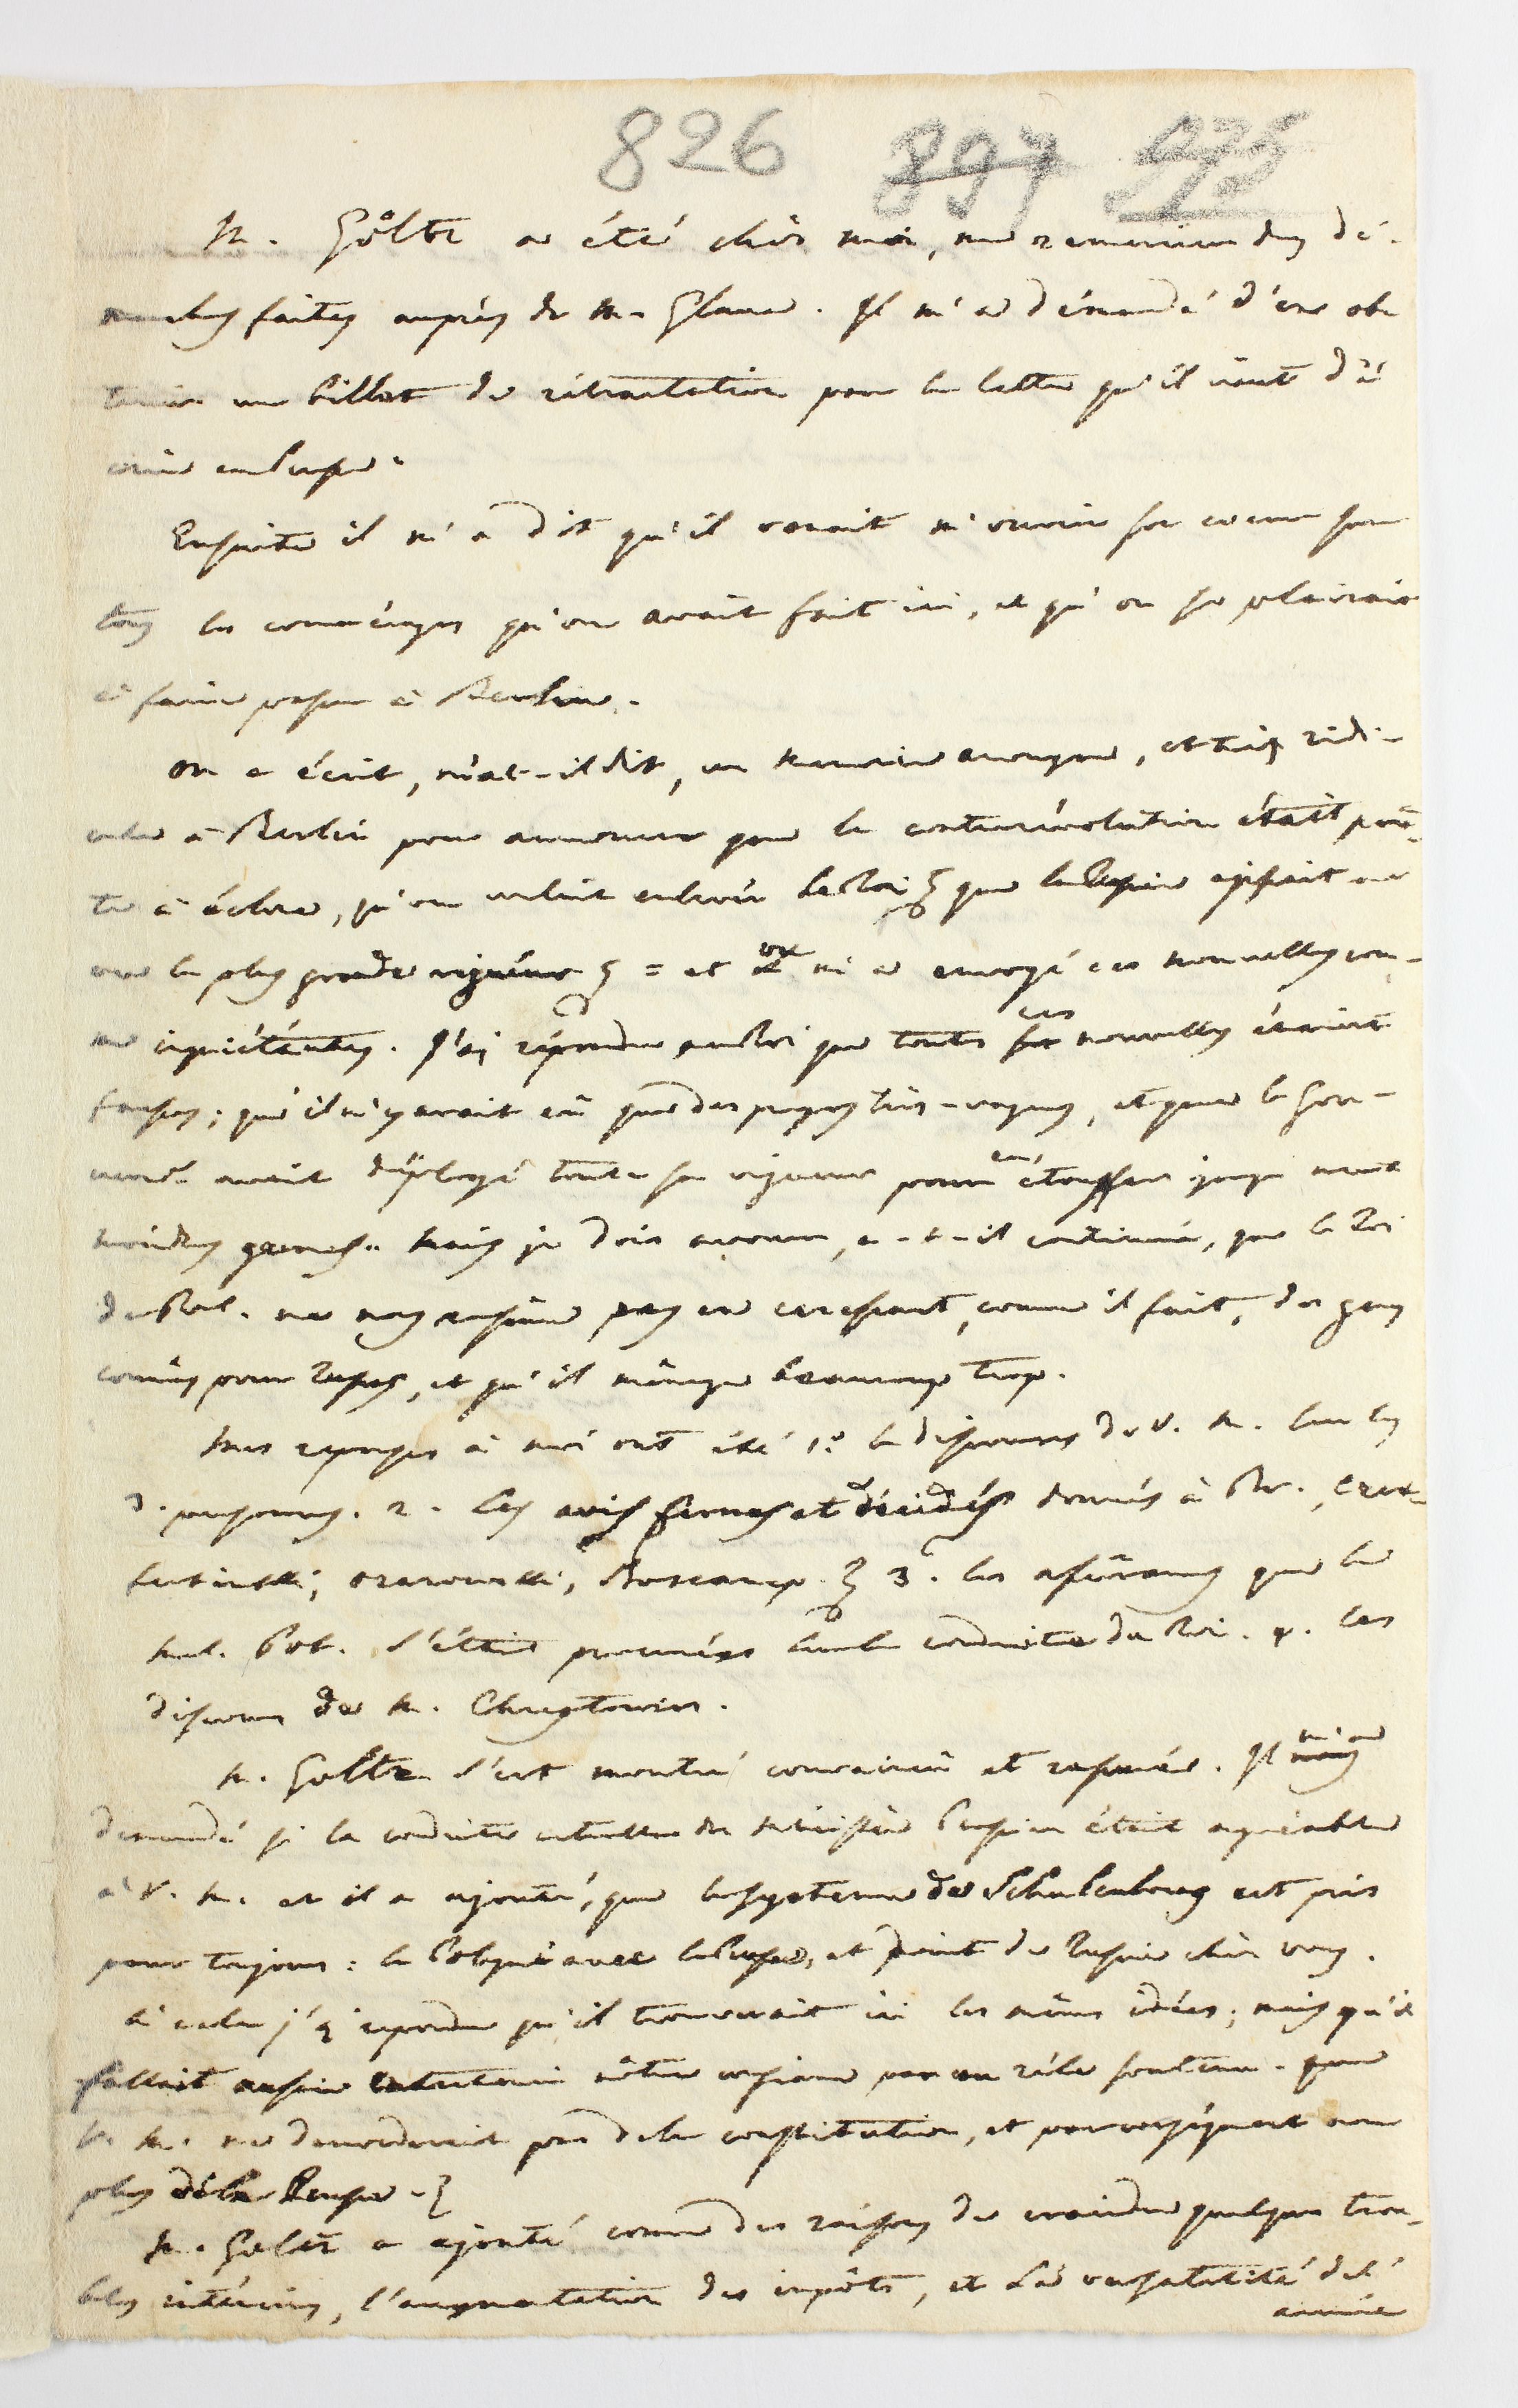 826 897 975
M. Goltz a été chés moi, me remercier des dé-
marches faites auprès de M. Glave. Il m'a démandé d'en ob
tenir un billet de rétractation pour la lettre qu'il vient d'é
crire
Ensuite il m'a dit qu'il venait m'ouvrir son coeur sur
tous les commérages qu'on avait fait ici, et qu'on se plairait
à faire passer à Berlin.
On a écrit, m'at-il dit, un memoire anonyme, et très ridi-
cule à Berlin pour annoncer que la contrerévolution était prê-
te à éclore, qu'on voulait enlever le Roi que la Russie agissait a
vec la plus grande vigueur = et on m'a envoyé ces nouvelles com-
me inquiétantes. J'ai répondu au Roi que toutes ces nouvelles étaient
fausses; qu'il n'y avait eû que des propos très-vagues, et que le Gou-
vern. avait déployé toute sa vigueur pour en étouffer jusqu aux
moindres germes. Mais je dois avouer, a-t-il continué, que le Roi
de Pol. ne nous rassure pas en caressant, comme il fait, des gens
connus pour Russes, et qu'il ménage beaucoup trop.
Mes reponses à moi ont été 1º le discours de V. M. sur les
3. personnes. 2. Les avis fermes et décidés donnés à Br.
Ozarowski, Boscamp. 3. les assurances que le
Mal. Pot. s'était procurées sur la conduite du Roi. 4. les
discours de M. Chreptowicz.
M. Goltz s'est montré convaincu et rassuré. Il m'a
demandé si la conduite actuelle du ministère Prussien était agréable
à V. M. et il a ajouté, que le systeme de Schulenbourg est pris
pour toujours: la Pologne avec la Prusse, et point de Russie chés vous.
à cela j'ai repondu qu'il trouverait ici les mêmes idées; mais qu'il
fallait aussi entretenir nôtre confiance par un zèle soutenu. que
V. M. ne demorderait pas de la constitution, et par conséquent non
plus de la Prusse.
M. Goltz a ajouté comme des raisons de craindre quelques trou-
bles intérieurs, l'augmentation des impôts, et la versatilité de l'
armée